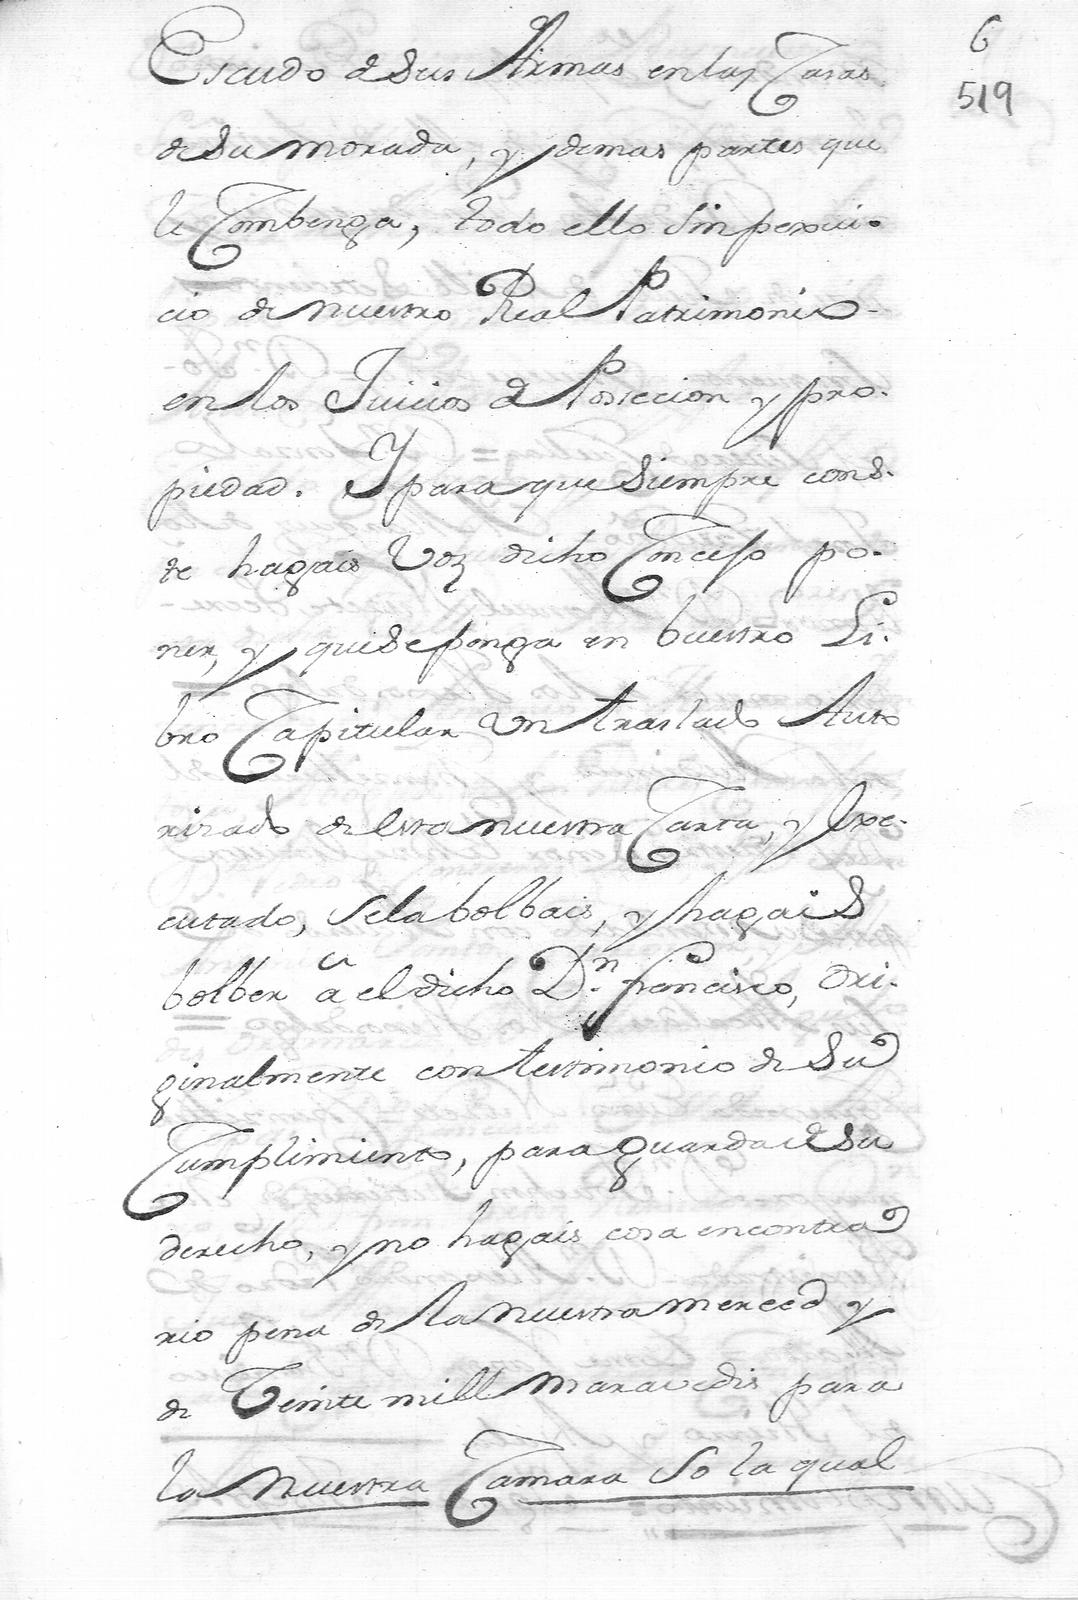 6
519
Escudo de Sus Armas en las Casas
de Su morada, y demas partes que
le Combenga, todo ello Sin perxui-
cio de nuestro Real Patrimonio-
en los Juicios de Possecion y pro-
piedad. Y para que Siempre cons-
te hagais Voz dicho Concejo po-
ner, y que Se ponga en buestro Li-
bro Capitular Un traslado Auto
rizado de esta nuestra Carta, y Exe-
cutado, Se la bolbais, y hagais
bolber a el dicho Dn. Francisco, Ori-
ginalmente con testimonio de Su
Cumplimiento, para guarda de Su
derecho, y no hagais cosa en contra
rio pena de la nuestra merced y
de Veinte mill maravedis para
la nuestra Camara So la qual